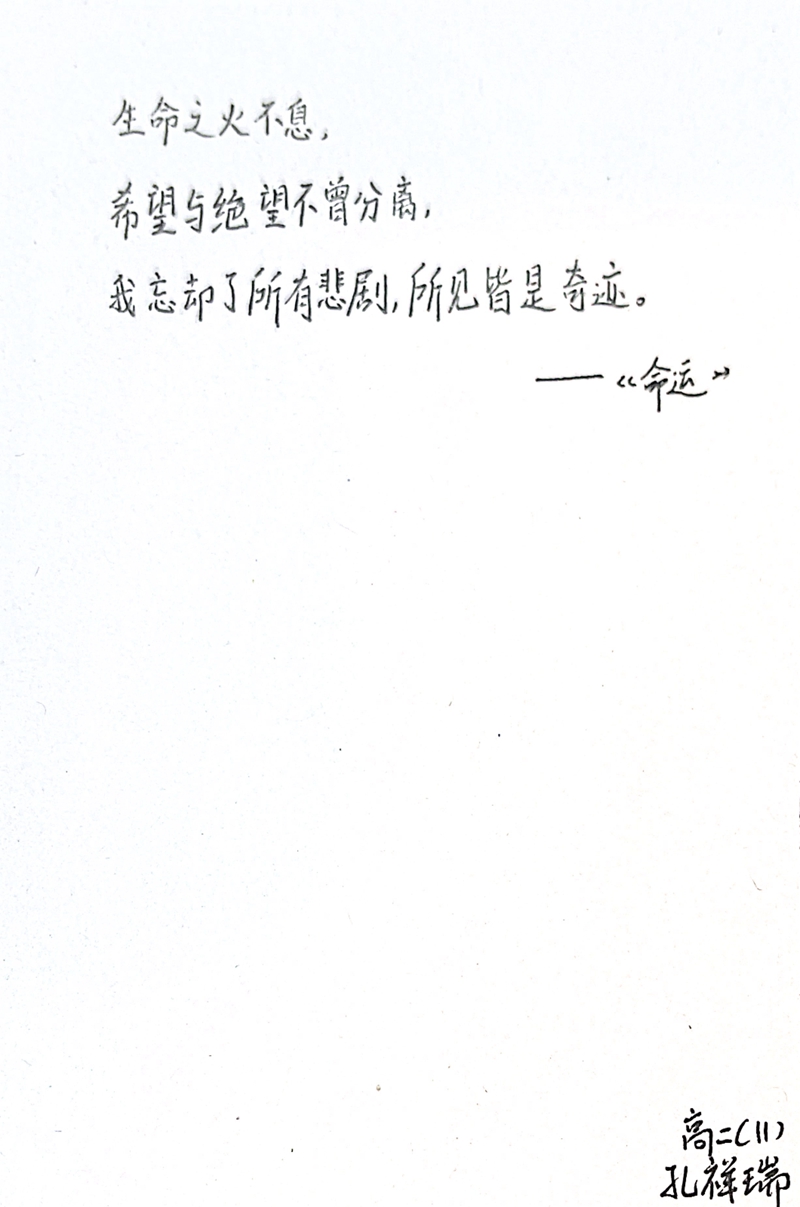 生命之火不息,
希望与绝望不曾分离,
我忘却了所有悲剧,所见皆是奇迹。
——《命运》
高二(11)
孔祥瑞